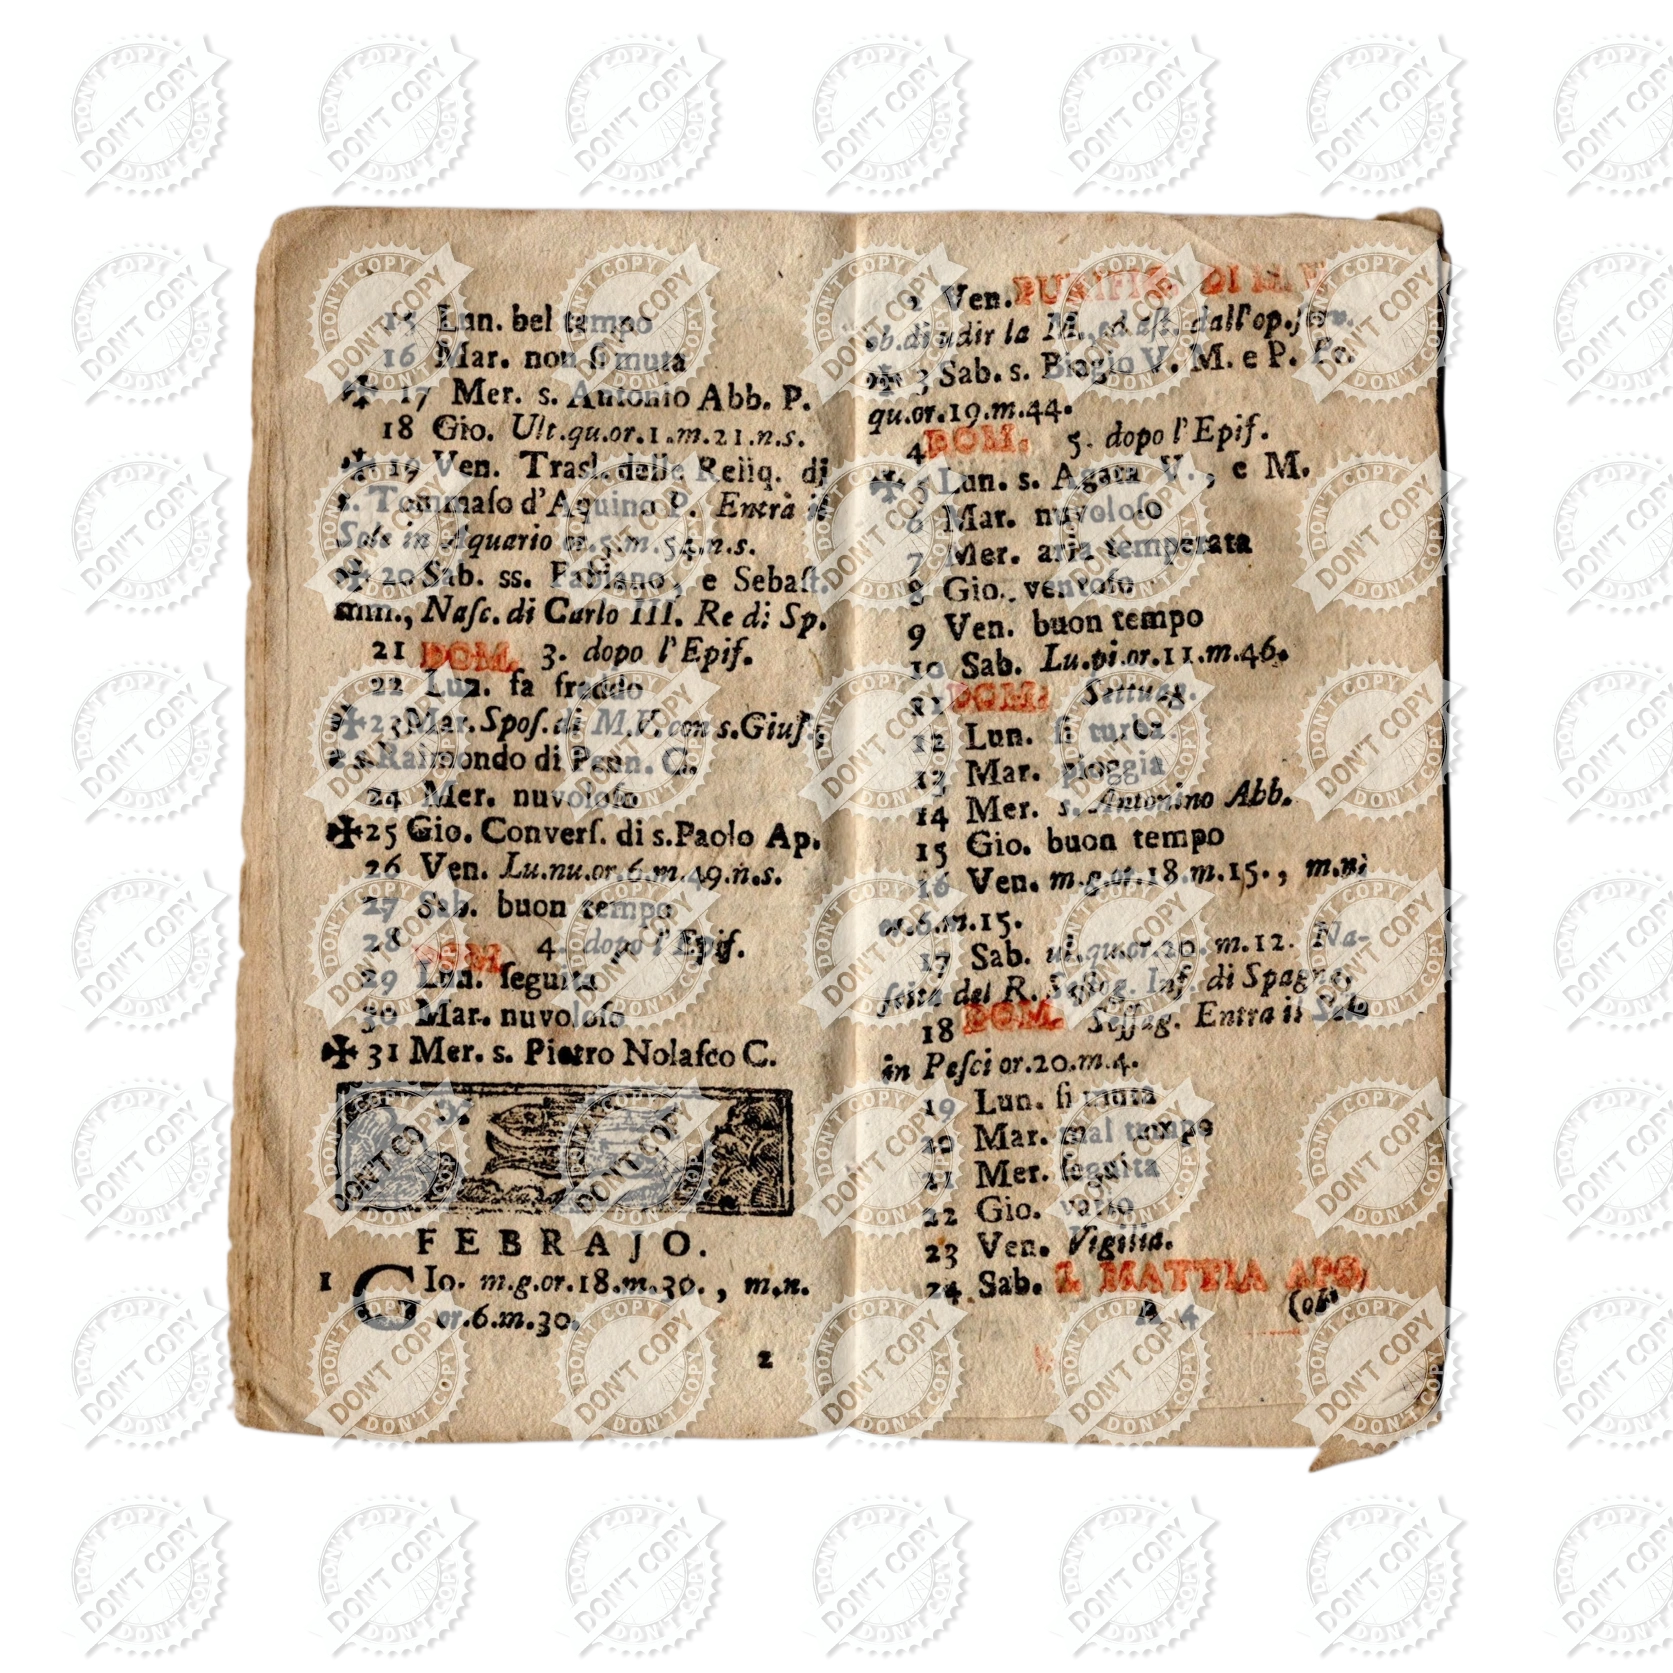 15 Lun. bel tempo
16 Mar. non ſi muta
✠ 17 Mer. s. Antonio Abb. P.
18 Gio. Ult.qu.or.1.m.21.n.s.
✠ 19 Ven. Trasl. delle Reliq. di
s. Tommaſo d'Aquino P. Entra il
Sole in Aquario or.5.m.54.n.s.
✠ 20 Sab. ss. Fabiano, e Sebaſt.
mm., Naſc. di Carlo III. Re di Sp.
21 DOM. 3. dopo l'Epif.
22 Lun. fa freddo
✠ 23 Mar. Spoſ. di M.V. con s.Giuſ.,
e s. Raimondo di Penn. C.
24 Mer. nuvoloſo
✠ 25 Gio. Converſ. di s.Paolo Ap.
26 Ven. Lu.nu.or.6.m.49.n.s.
27 Sab. buon tempo
28 DOM. 4. dopo l'Epif.
29 Lun. ſeguita
30 Mar. nuvoloſo
✠ 31 Mer. s. Pietro Nolaſco C.
FEBRAJO.
1 GIo. m.g.or.18.m.30., m.n.
or.6.m.30.
2
2 Ven. PURIFIC. DI M. V.
ob. di udir la M., ed aſt. dall'op. ſerv.
✠ 3 Sab. s. Biagio V. M. e P. Pr.
qu.or.19.m.44.
4 DOM. 5. dopo l'Epif.
✠ 5 Lun. s. Agata V., e M.
6 Mar. nuvoloſo
7 Mer. aria temperata
8 Gio. ventoſo
9 Ven. buon tempo
10 Sab. Lu.pi.or.11.m.46.
11 DOM. Settuag.
12 Lun. ſi turba
13 Mar. pioggia
14 Mer. s. Antonino Abb.
15 Gio. buon tempo
16 Ven. m.g.or.18.m.15., m.n.
or.6.m.15.
17 Sab. ul.qu.or.20.m.12. Na-
ſcita del R. Inf. di Spagna.
18 DOM. Seſſag. Entra il Sole
in Peſci or.20.m.4.
19 Lun. ſi muta
20 Mar. mal tempo
21 Mer. ſeguita
22 Gio. vario
23 Ven. Vigilia.
24 Sab. S. MATTIA APO.
A 4 (ob.